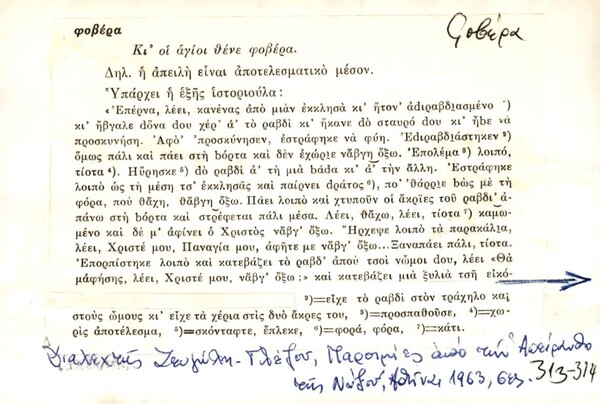 φοβέρα
φοβέρα
Κι' οἱ ἁγίοι θένε φοβέρα.
Δηλ. ἡ ἀπειλὴ εἶναι ἀποτελεσματικὸ μέσον.
Ὑπάρχει ἡ ἑξῆς ἱστοριούλα:
«Ἐπέρνα, λέει, κανένας ἀπὸ μιὰν ἐκκλησὰ κι' ἤτον' ἀdιραβδιασμένο ²)
κι' ἤβγαλε dὄνα dου χέρ' ἀ' τὸ ραβδὶ κι' ἤκανε dὸ σταυρό dου κι' ἤbε νὰ
προσκυνήση. Ἀφὸ' προσκύνησεν, ἐστράφηκε νὰ φύη. Ἐdιραβδιάστηκεν ²)
ὅμως πάλι καὶ πάει στὴ bόρτα καὶ δὲν ἐχώριε νἄβγη ὄξω. Ἐπολέμα ³) λοιπό,
τίοτα ⁴). Ηὕρησκε ⁵) dὸ ραβδὶ ἀ' τὴ μιὰ bάdα κι' ἀ' τὴν ἄλλη. Ἐστράφηκε
λοιπὸ ὡς τὴ μέση τσ' ἐκκλησᾶς καὶ παίρνει dράτος ⁶), πο' 'θάρριε bὼς μὲ τὴ
φόρα, ποὺ θἄχη, θἄβγη ὄξω. Πάει λοιπὸ καὶ χτυποῦν οἱ ἄκρίες τοῦ ραβδι' ἀ-
πάνω στὴ bόρτα καὶ στρέφεται πάλι μέσα. Λέει, θἄχω, λέει, τίοτα ⁷) καμω-
μένο καὶ δὲ μ' ἀφίνει ὁ Χριστὸς νἄβγ' ὄξω. Ἤρχεψε λοιπὸ τὰ παρακάλια,
λέει, Χριστέ μου, Παναγία μου, ἀφῆτε με νἄβγ' ὄξω...Ξαναπάει πάλι, τίοτα.
Ἐπορπίστηκε λοιπὸ καὶ κατεβάζει τὸ ραβδ' ἀποὺ τσοὶ νώμοι dου, λέει «Θὰ
μ̓ἀφήσης, λέει, Χριστέ μου, νἄβγ' ὄξω;» καὶ κατεβάζει μιὰ ξυλιὰ τσῆ εἰκό-
²)=εἶχε τὸ ραβδὶ στὸν τράχηλο καὶ
στοὺς ὤμους κι' εἶχε τὰ χέρια στὶς δυὸ ἄκρες του, ³)=προσπαθοῦσε, ⁴)=χω-
ρὶς ἀποτέλεσμα, ⁵)=σκόνταφτε, ἔπλεκε, ⁶)=φορά, φόρα, ⁷)=κάτι.
Διαλεχτῆς Ζευγώλη-Γλέζου, Παροιμίες ἀπὸ τὴν Ἀπείρανθο
τῆς Νάξου, Ἀθήνα 1963, σελ. 313-314